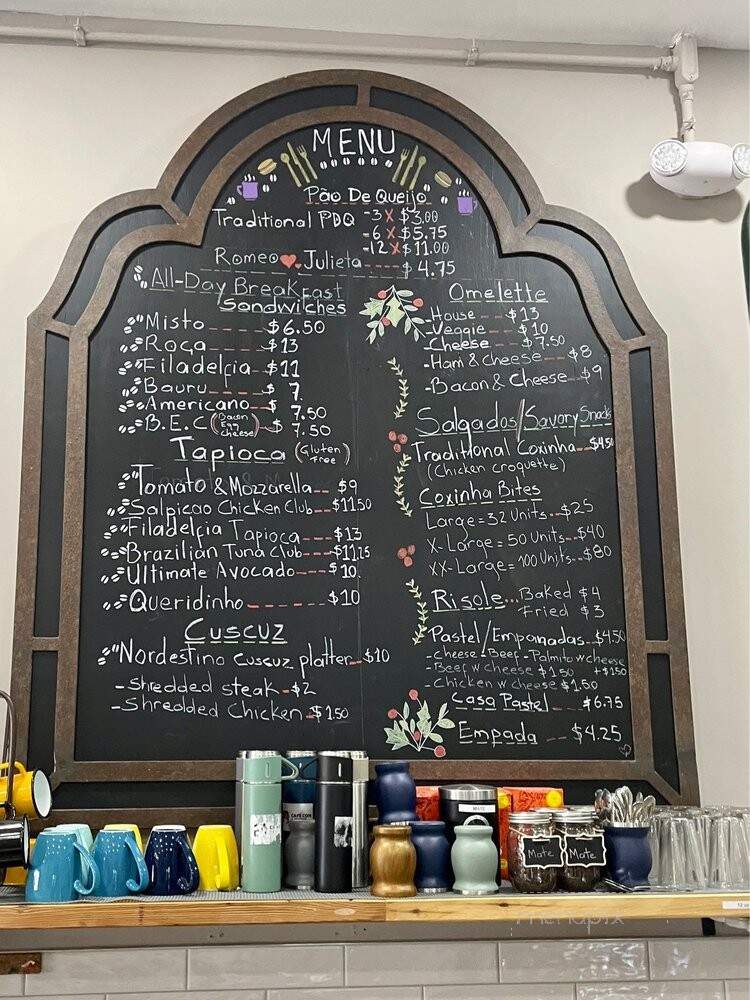 MENU
Pão De Queijo
Traditional PDQ -3 x $3.00
-6 x $5.75
-12 x $11.00
Romeo Julieta $4.75
All-Day Breakfast
Sandwiches
Misto $6.50
Roça $13
Filadelfia $11
Bauru $7
Americano $7.50
B.E.C (Bacon Egg cheese) $7.50
Tapioca (Gluten Free)
Tomato & Mozzarella $9
Salpicao Chicken Club $11.50
Filadelfia Tapioca $13
Brazilian Tuna Club $11.75
Ultimate Avocado $10
Queridinho $10
Cuscuz
Nordestino Cuscuz platter $10
-Shredded steak -$2
-Shredded Chicken $1.50
Omelette
-House $13
-Veggie $10
-Cheese $7.50
-Ham & Cheese $8
-Bacon & Cheese $9
Salgados/Savory Snacks
Traditional Coxinha $4.50
(Chicken croquette)
Coxinha Bites
Large = 32 Units $25
X-Large = 50 Units $40
XX-Large = 100 Units $80
Risole... Baked $4
Fried $3
Pastel/Empanadas $4.50
-Cheese -Beef -Palmito w cheese
-Beef w cheese $1.50 +$1.50
-Chicken w cheese $1.50
Casa Pastel $6.75
Empada $4.25
MATE
Mate
Mate